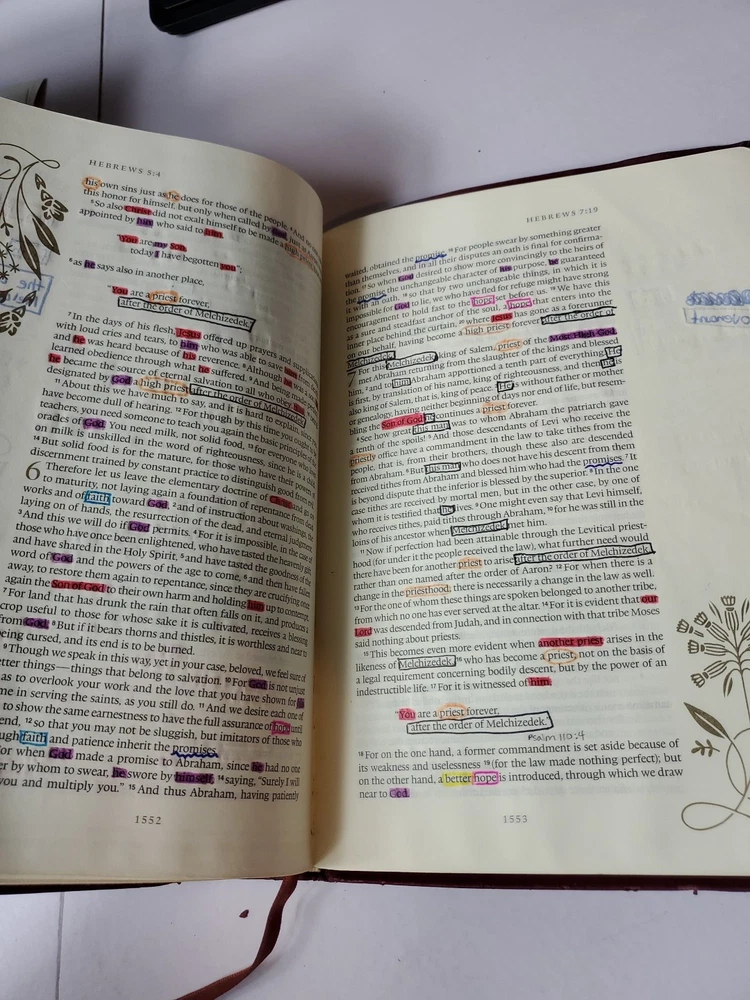 HEBREWS 5:4
his own sins just as he does for those of the people. ⁴And
this honor for himself, but only when called by God, just
⁵So also Christ did not exalt himself to be made a high
appointed by him who said to him,
"You are my Son,
today I have begotten you";
⁶as he says also in another place,
"You are a priest forever,
after the order of Melchizedek."
⁷In the days of his flesh, Jesus offered up prayers and
with loud cries and tears, to him who was able to save
and he was heard because of his reverence. ⁸Although he
learned obedience through what he suffered. ⁹And being made
he became the source of eternal salvation to all who obey
designated by God a high priest after the order of Melchizedek.
¹¹About this we have much to say, and it is hard to explain,
have become dull of hearing. ¹²For though by this time you ought
teachers, you need someone to teach you again the basic principles
oracles of God. You need milk, not solid food, ¹³for everyone who
on milk is unskilled in the word of righteousness, since he is a child.
¹⁴But solid food is for the mature, for those who have their powers of
discernment trained by constant practice to distinguish good from
6 Therefore let us leave the elementary doctrine of Christ and go
to maturity, not laying again a foundation of repentance from dead
works and of faith toward God, ²and of instruction about washings,
laying on of hands, the resurrection of the dead, and eternal judgment.
³And this we will do if God permits. ⁴For it is impossible, in the case of
those who have once been enlightened, who have tasted the heavenly
and have shared in the Holy Spirit, ⁵and have tasted the goodness of the
word of God and the powers of the age to come, ⁶and then have fallen
away, to restore them again to repentance, since they are crucifying once
again the Son of God to their own harm and holding him up to contempt.
⁷For land that has drunk the rain that often falls on it, and produces a
crop useful to those for whose sake it is cultivated, receives a blessing
from God. ⁸But if it bears thorns and thistles, it is worthless and near to
being cursed, and its end is to be burned.
⁹Though we speak in this way, yet in your case, beloved, we feel sure of
etter things—things that belong to salvation. ¹⁰For God is not unjust
as to overlook your work and the love that you have shown for his
me in serving the saints, as you still do. ¹¹And we desire each one of
to show the same earnestness to have the full assurance of hope until
end, ¹²so that you may not be sluggish, but imitators of those who
ugh faith and patience inherit the promises.
or when God made a promise to Abraham, since he had no one
er by whom to swear, he swore by himself, ¹⁴saying, "Surely I will
you and multiply you." ¹⁵And thus Abraham, having patiently
1552
HEBREWS 7:19
waited, obtained the promise. ¹⁶For people swear by something greater
than themselves, and in all their disputes an oath is final for confirma-
tion. ¹⁷So when God desired to show more convincingly to the heirs of
the promise the unchangeable character of his purpose, he guaranteed
it with an oath, ¹⁸so that by two unchangeable things, in which it is
impossible for God to lie, we who have fled for refuge might have strong
encouragement to hold fast to the hope set before us. ¹⁹We have this
as a sure and steadfast anchor of the soul, a hope that enters into the
inner place behind the curtain, ²⁰where Jesus has gone as a forerunner
on our behalf, having become a high priest forever after the order of
Melchizedek.
7 For this Melchizedek, king of Salem, priest of the Most High God,
met Abraham returning from the slaughter of the kings and blessed
him, ²and to him Abraham apportioned a tenth part of everything. He
is first, by translation of his name, king of righteousness, and then he is
also king of Salem, that is, king of peace. ³He is without father or mother
or genealogy, having neither beginning of days nor end of life, but resem-
bling the Son of God he continues a priest forever.
⁴See how great this man was to whom Abraham the patriarch gave
a tenth of the spoils! ⁵And those descendants of Levi who receive the
priestly office have a commandment in the law to take tithes from the
people, that is, from their brothers, though these also are descended
from Abraham. ⁶But this man who does not have his descent from them
received tithes from Abraham and blessed him who had the promises. ⁷It
is beyond dispute that the inferior is blessed by the superior. ⁸In the one
case tithes are received by mortal men, but in the other case, by one of
whom it is testified that he lives. ⁹One might even say that Levi himself,
who receives tithes, paid tithes through Abraham, ¹⁰for he was still in the
loins of his ancestor when Melchizedek met him.
¹¹Now if perfection had been attainable through the Levitical priest-
hood (for under it the people received the law), what further need would
there have been for another priest to arise after the order of Melchizedek,
rather than one named after the order of Aaron? ¹²For when there is a
change in the priesthood, there is necessarily a change in the law as well.
¹³For the one of whom these things are spoken belonged to another tribe,
from which no one has ever served at the altar. ¹⁴For it is evident that our
Lord was descended from Judah, and in connection with that tribe Moses
said nothing about priests.
¹⁵This becomes even more evident when another priest arises in the
likeness of Melchizedek, ¹⁶who has become a priest, not on the basis of
a legal requirement concerning bodily descent, but by the power of an
indestructible life. ¹⁷For it is witnessed of him,
"You are a priest forever,
after the order of Melchizedek."
Psalm 110:4
¹⁸For on the one hand, a former commandment is set aside because of
its weakness and uselessness ¹⁹(for the law made nothing perfect); but
on the other hand, a better hope is introduced, through which we draw
near to God.
1553